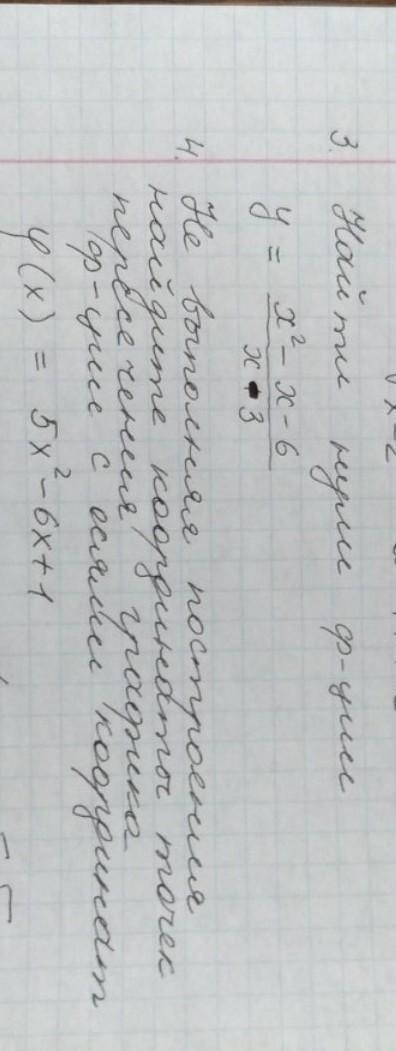 3. Найти нули ф-ции
y = x² - x - 6 / x - 3
4. Не выполняя построения
найдите координаты точек
пересечения графика
ф-ции с осями координат
φ(x) = 5x² - 6x + 1